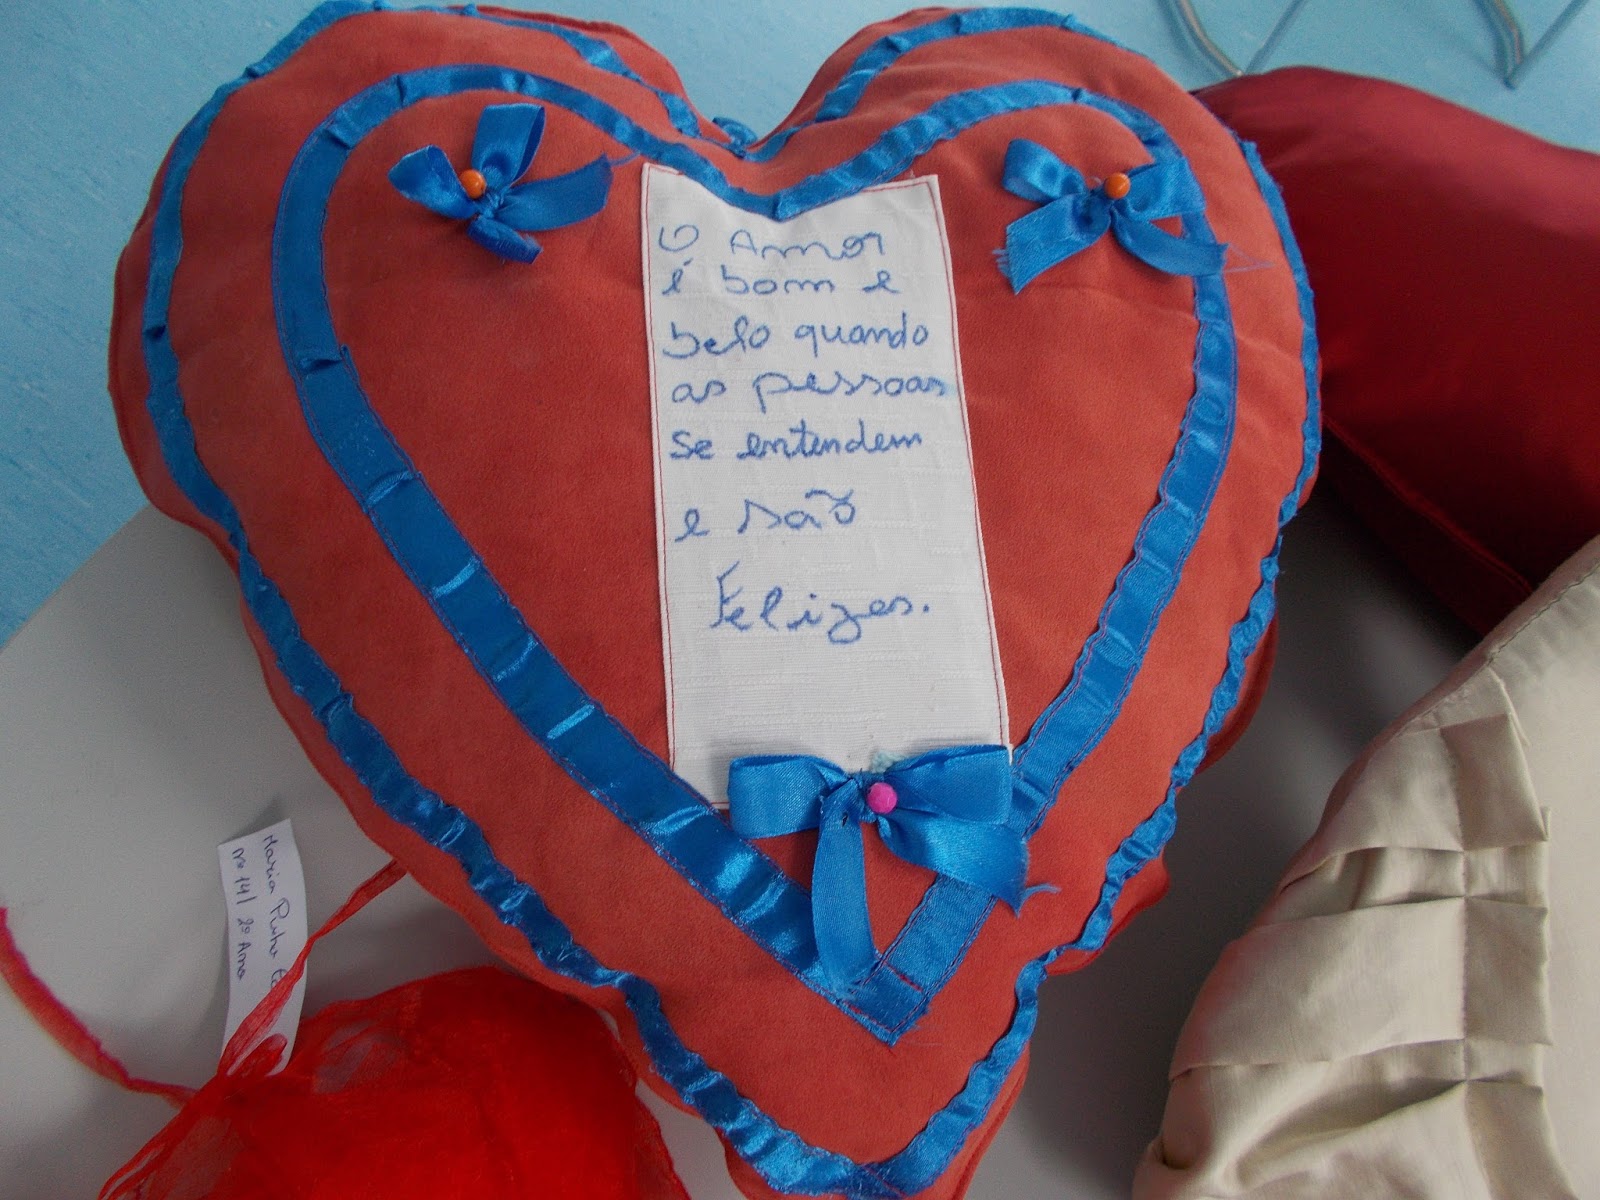 O Amor
é bom e
belo quando
as pessoas
se entendem
e são
Felizes.
Maria Pinho
Nº 14/ 2º Ano